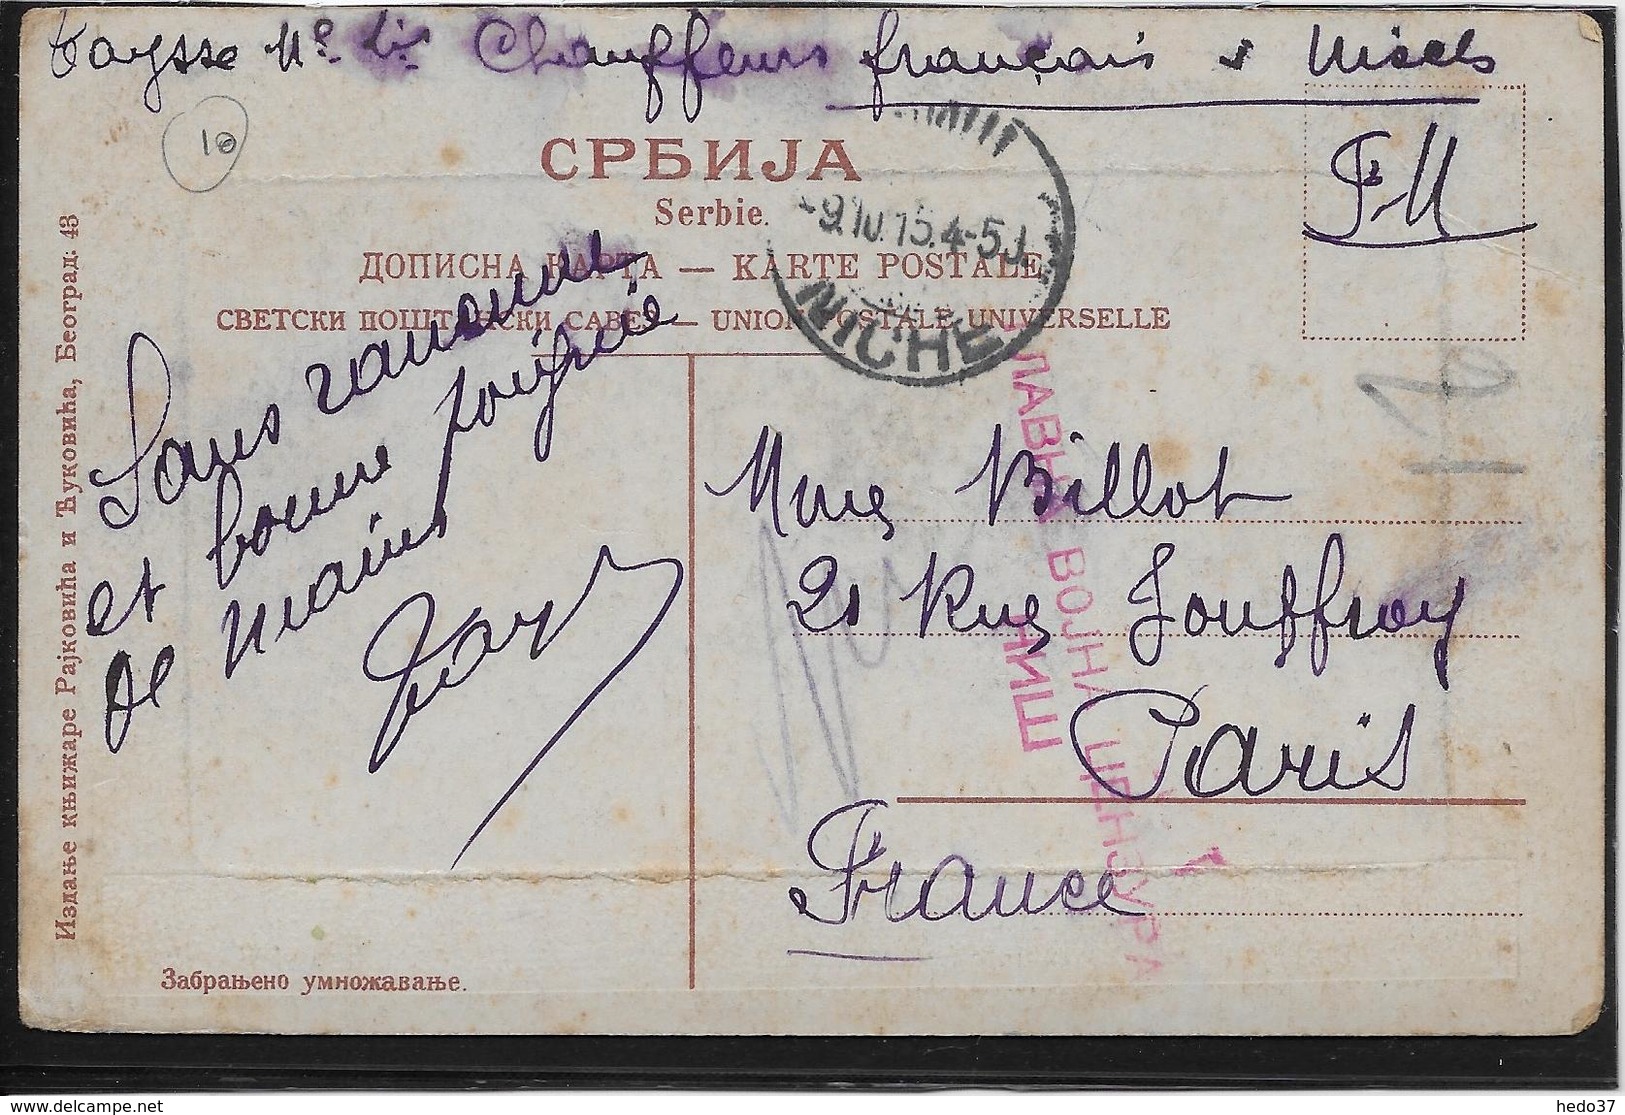 Chauffeurs français
F.M
10
СРБИЈА
Serbie.
ДОПИСНА КАРТА — KARTE POSTALE
СВЕТСКИ ПОШТАНСКИ САВЕЗ — UNION POSTALE UNIVERSELLE
-9.IV.15.4-5J.
NICHE
Издање књижаре Рајковића и Ћуковића, Београд: 43
Sans rancune
et bonne poignée
de mains
Mme Billot
21 Rue Jouffroy
Paris
France
ГЛАВНА ВОЈНА ЦЕНЗУРА
НИШ
Забрањено умножавање.
delcampe.net
hedo37